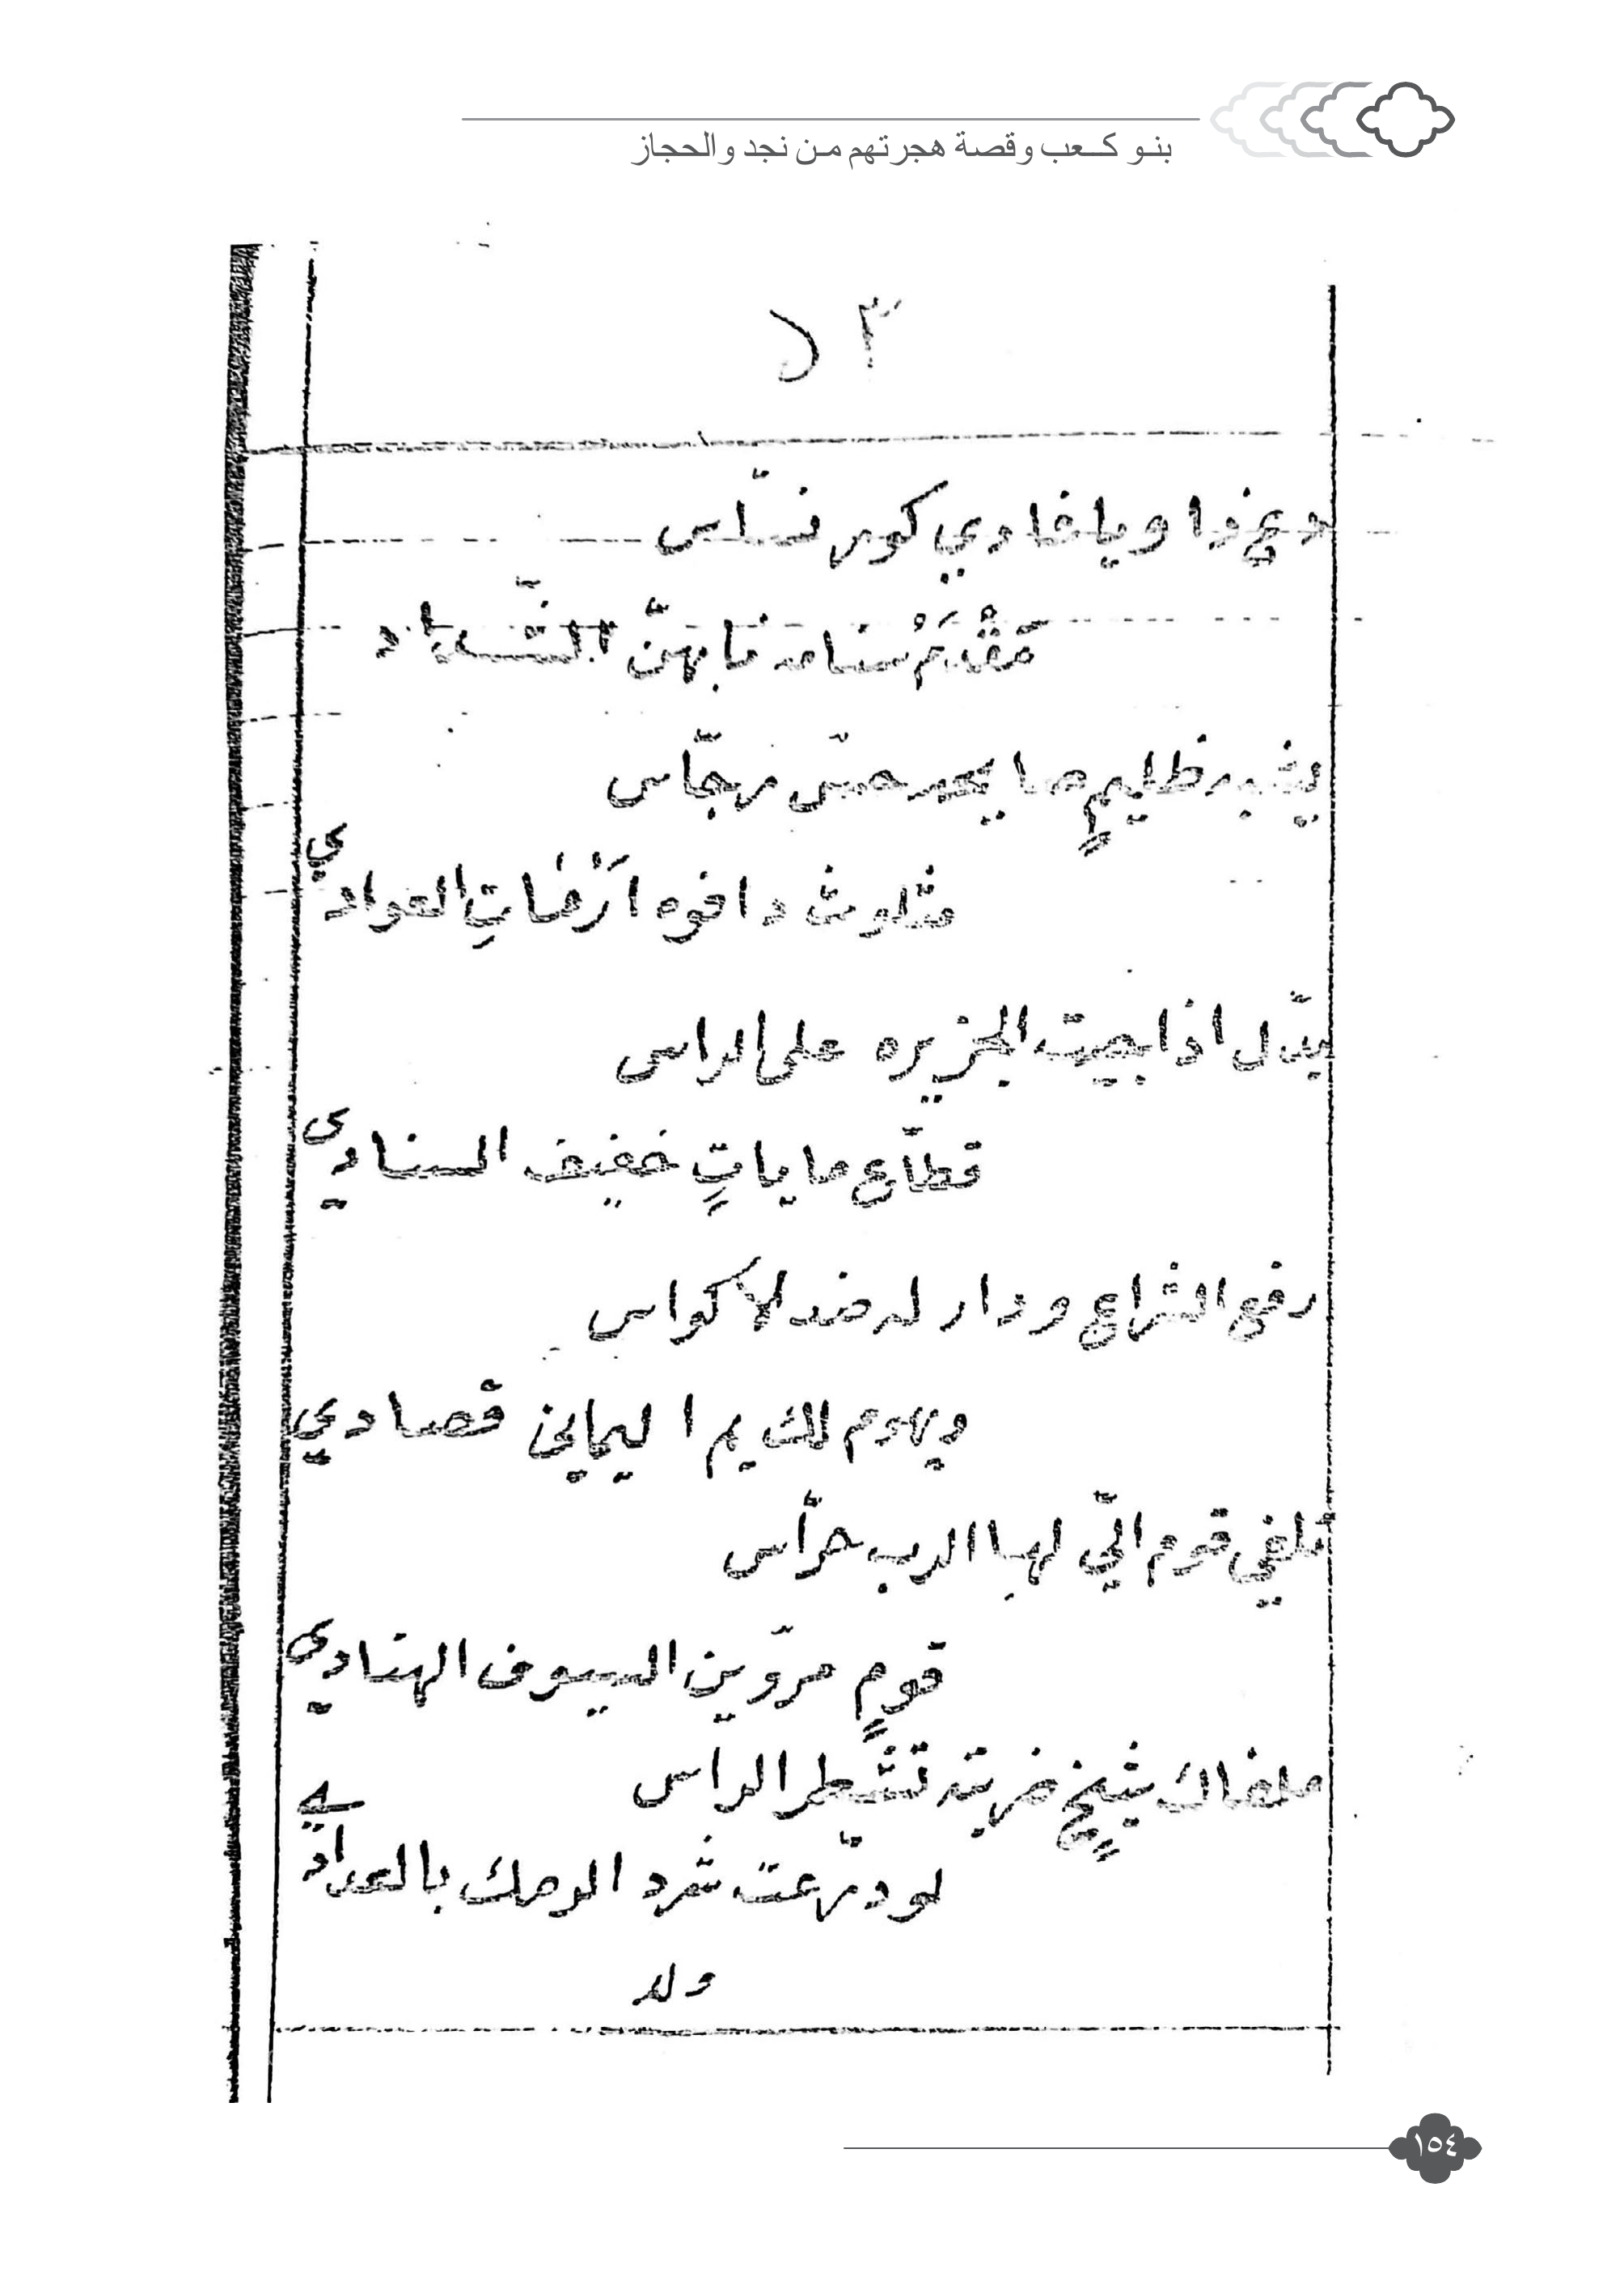 بنو كعب وقصة هجرتهم من نجد والحجاز
دع ذا ويا غادي كور نسّاس
مَقْدَمْ سنامه نابهنّ الشّداد
يشبه ظليمٍ صايحه حسّ رجّاس
مثلوث دافوه ارْضاتِ العوادي
يدّل اذا جيت الجزيره على الراس
قطّاع ماياتٍ خفيف السنادي
رفع الشراع ودار له ضد لاكواس
ويهوم لك يم اليماني قصادي
تلفي قوم الّي لهبا الدرب حرّاس
قومٍ مروّين السيوف الهنادي
ملفاك شيخٍ ضربته تشطر الراس
لو درّعت شرد الرمك بالعدادي
ولد
١٥٤